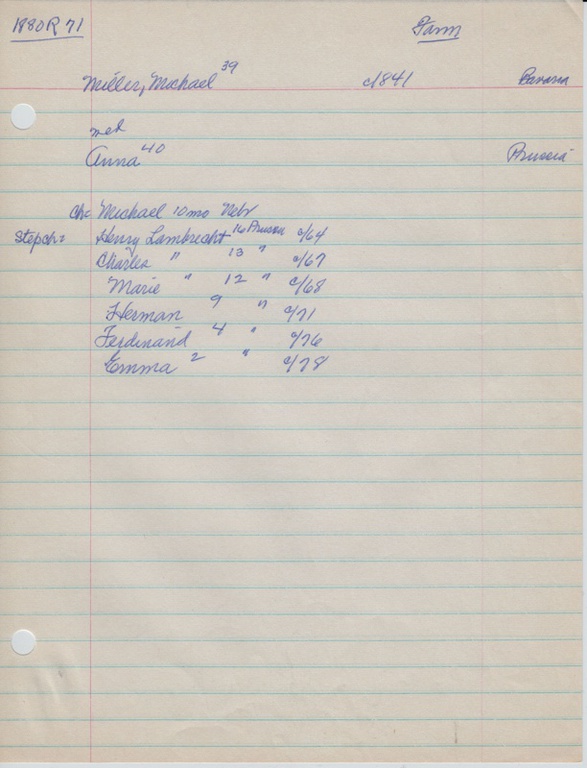 1880R 71 Farm
Miller, Michael 39 c/1841 Bavaria
med
Anna 40 Prussia
Ch: Michael 10 mo Nebr
Stepch: Henry Lambrecht 16 Prussia c/64
Charles " 13 " c/67
Marie " 12 " c/68
Herman 9 " c/71
Ferdinand 4 " c/76
Emma 2 " c/78